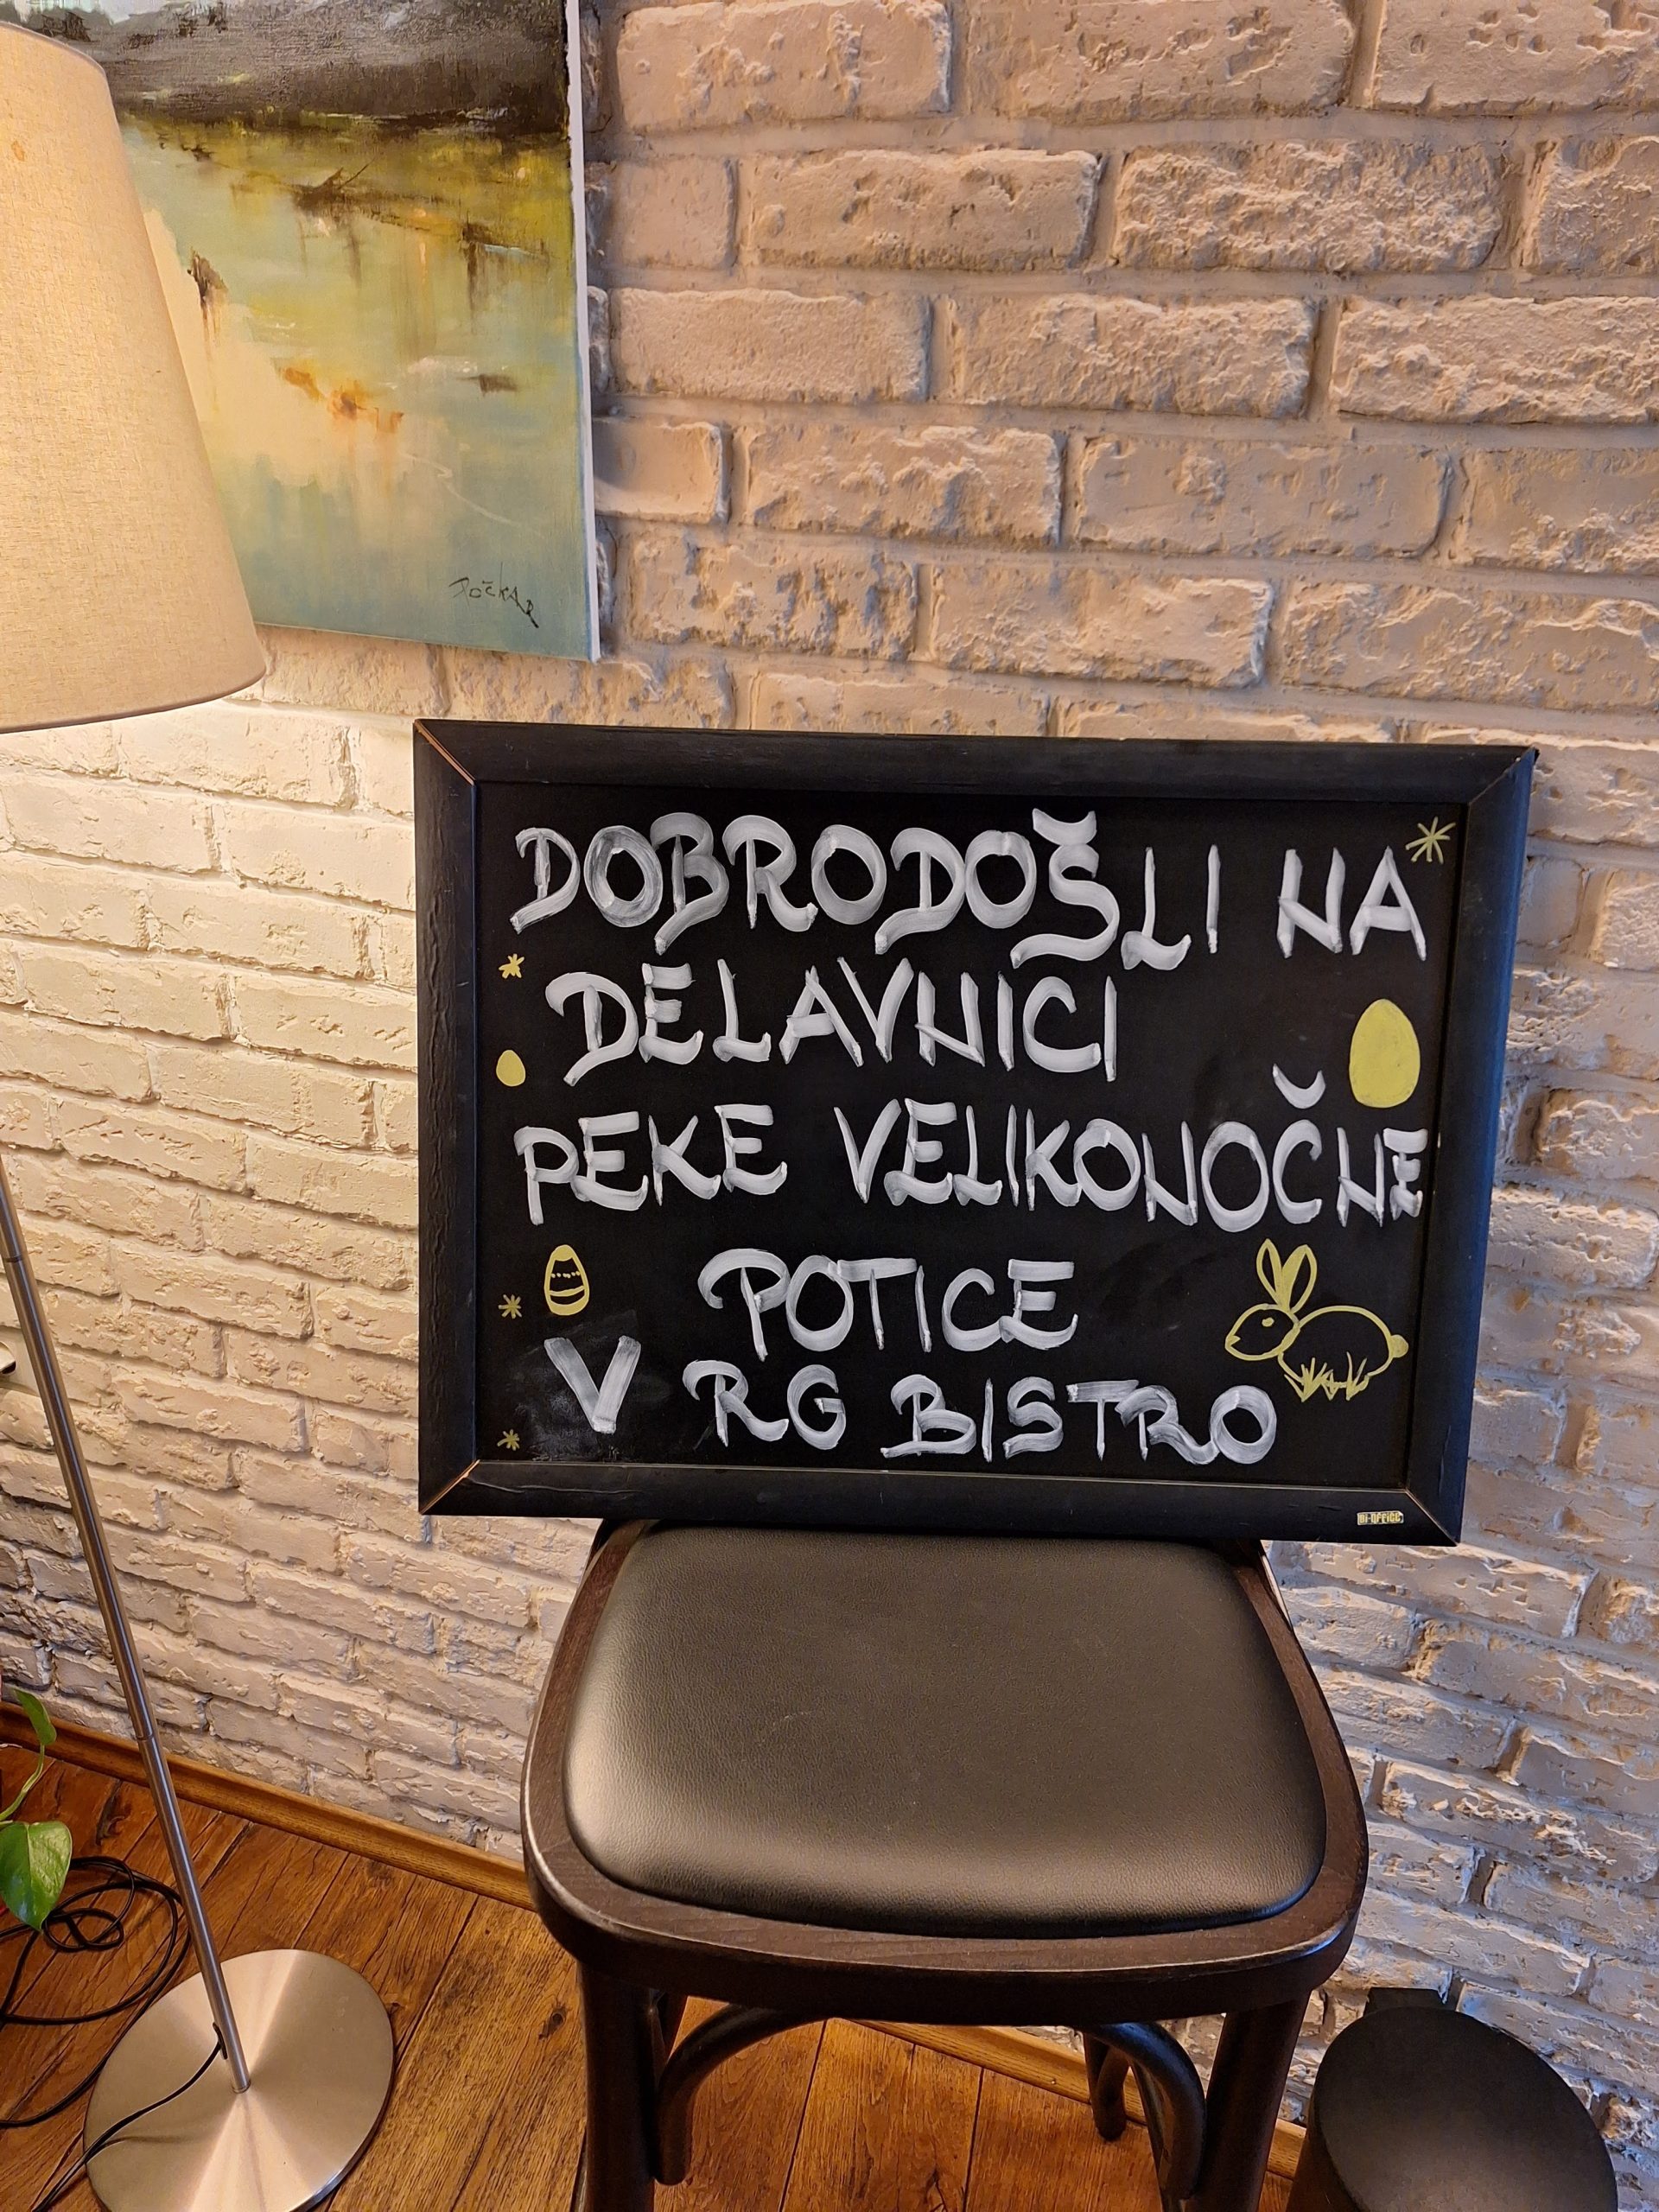 Počkar
DOBRODOŠLI NA
DELAVNICI
PEKE VELIKONOČNE
POTICE
V RG BISTRO
Bi-OFFICE